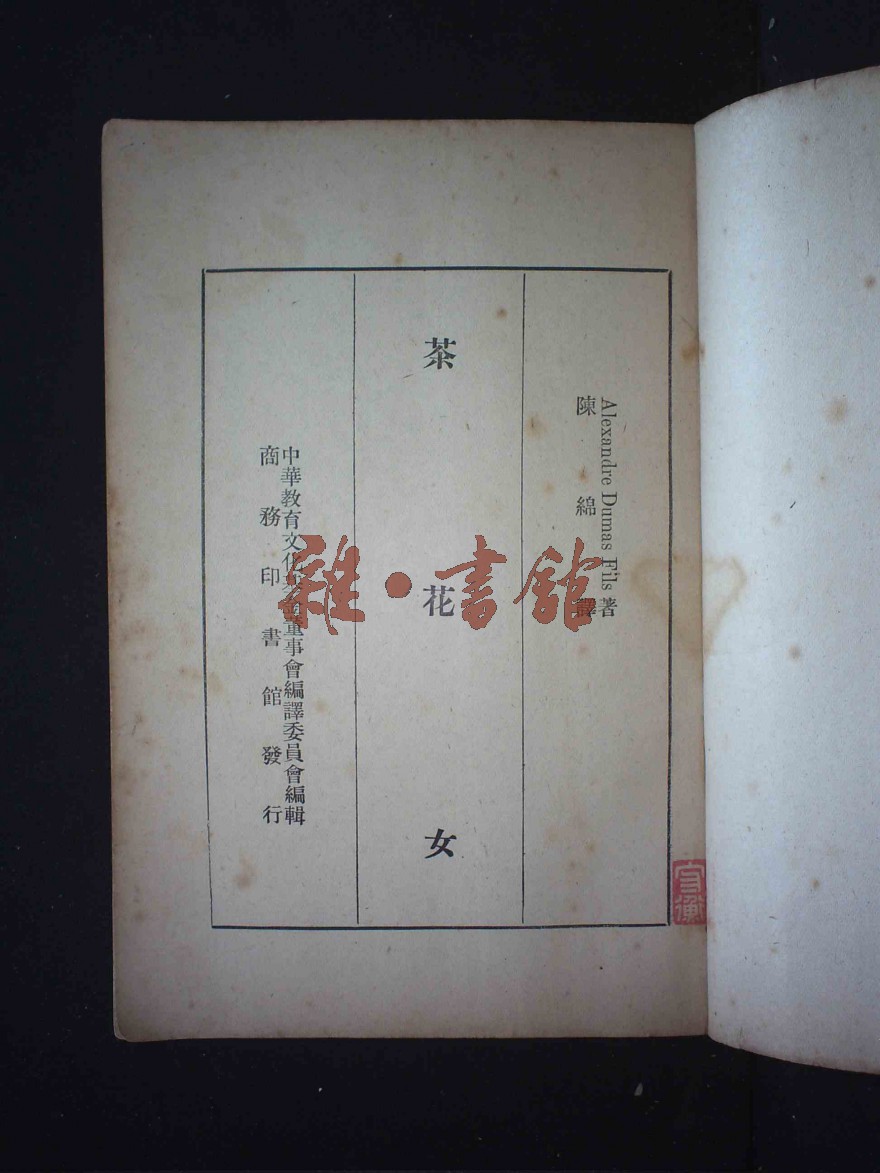 Alexandre Dumas Fils 著
陳綿譯
茶花女
中華教育文化基金董事會編譯委員會編輯
商務印書館發行
雜·書館
守衡